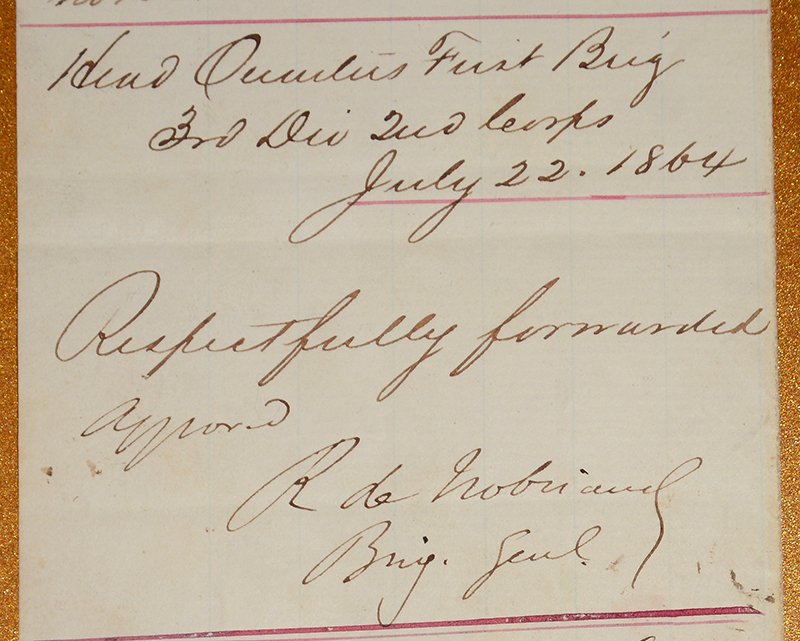 Head Quarters First Brig
3rd Div 2nd Corps
July 22. 1864
Respectfully forwarded
approved
R de Trobriand
Brig. Genl.